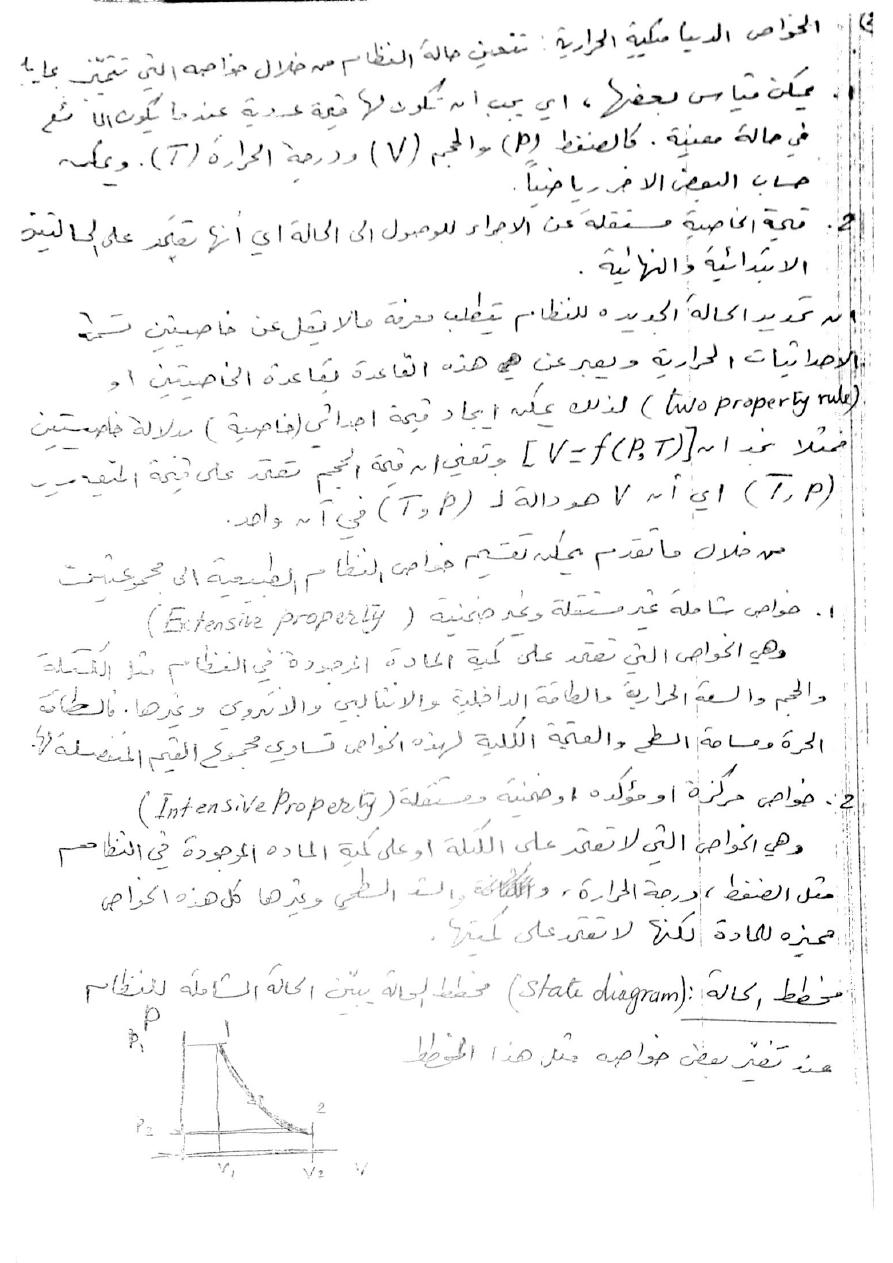 (3
الخواص الديناميكية الحرارية: تتعين حالة النظام من خلال خواصه التي تتميز بمايلي
1. يمكن قياس بعضها، اي يجب ان تكون لها قيمة عددية عندما يكون المائع
في حالة معينة. كالضغط (P) والحجم (V) ودرجة الحرارة (T). ويمكن
حساب البعض الاخر رياضياً.
2. قيمة الخاصية مستقلة عن الاجراء للوصول الى الحالة اي أنها تعتمد على الحالتين
الابتدائية والنهائية.
ان تحديد الحالة الجديده للنظام يتطلب معرفة مالا يقل عن خاصيتين تسمى
الاحداثيات الحرارية ويعبر عن هذه القاعدة بقاعدة الخاصيتين او
(two property rule) لذلك يمكن ايجاد قيمة احداثي (خاصية) بدلالة خاصيتين
فمثلا نجد ان [V = f(P,T)] وتعني ان قيمة الحجم تعتمد على قيمة المتغيرين
(T, P) اي أن V هو دالة لـ (T, P) في آن واحد.
من خلال ماتقدم يمكن تقسيم خواص النظام الطبيعية الى مجموعتين
1. خواص شاملة غير مستقلة وغير ضمنية (Extensive property)
وهي الخواص التي تعتمد على كمية المادة الموجودة في النظام مثل الكتلة
والحجم والسعة الحرارية والطاقة الداخلية والانثالبي والانتروبي وغيرها. فالطاقة
الحرة ومساحة السطح والقيمة الكلية لهذه الخواص تساوي مجموع القيم المنفصلة لها.
2. خواص مركزة او مؤكده او ضمنية ومستقلة (Intensive Property)
وهي الخواص التي لا تعتمد على الكتلة او على كمية الماده الموجودة في النظام
مثل الضغط، درجة الحرارة، والشد السطحي وغيرها كل هذه الخواص
مميزه للمادة لكنها لا تعتمد على كميتها.
مخطط الحالة: (State diagram) مخطط الحالة يبين الحالة الشاملة للنظام
عند تغير بعض خواصه مثل هذا المخطط
P
P1
1
2
P2
V1
V2
V